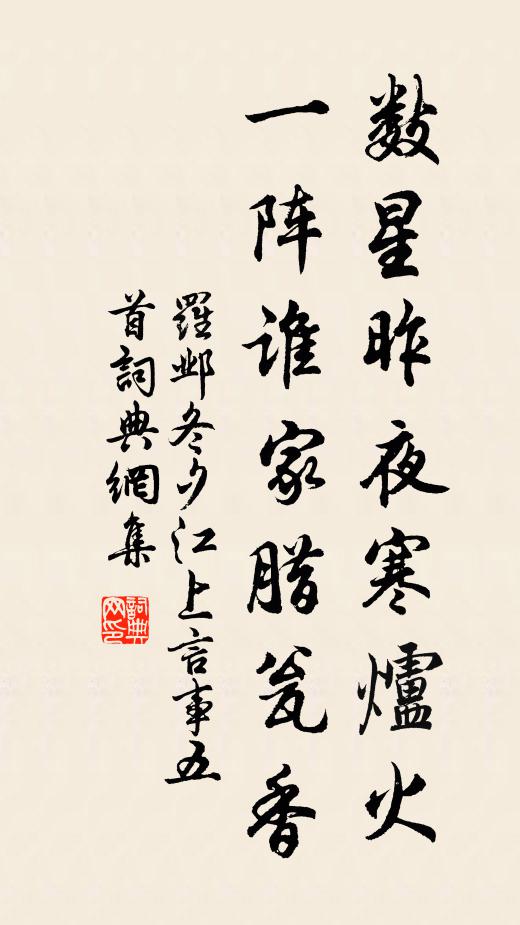 数星昨夜寒爐火
一阵谁家腊瓮香
羅邺冬夕江上言事五
首詞典網集
詞典
网印